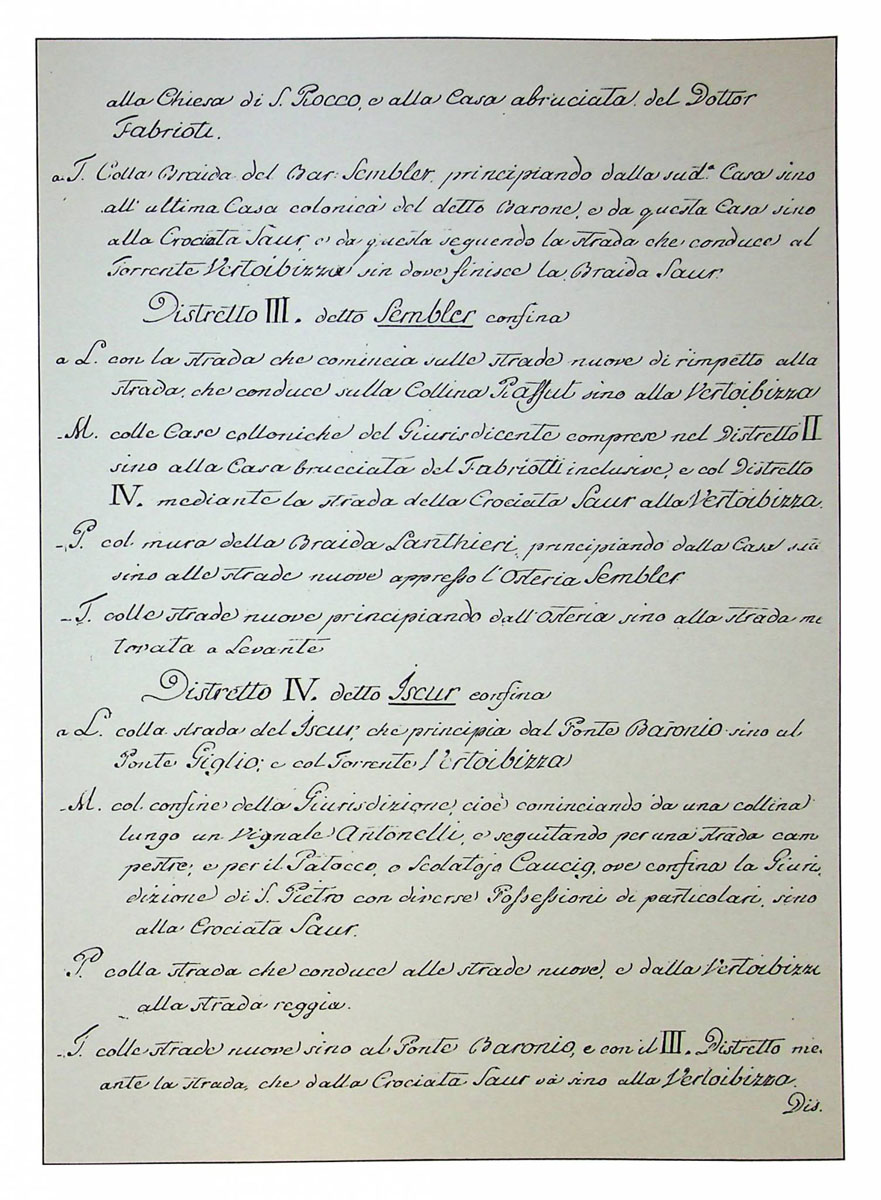 alla Chiesa di S. Rocco, e alla Casa abruciata del Dottor
Fabrioti.
a T. Colla Braida del Bar: Sembler, principiando dalla sud.ª Casa sino
all' ultima Casa colonica del detto Barone, e da questa Casa sino
alla Crociata Saur, e da questa seguendo la strada che conduce al
Torrente Vertoibizza sin dove finisce la Braida Saur.
Distretto III. detto Sembler confina
a L. con la strada che comincia sulle strade nuove di rimpetto alla
strada, che conduce sulla Collina Rafsut sino alla Vertoibizza
- M. colle Case colloniche del Giurisdicente comprese nel Distretto II
sino alla Casa brucciata del Fabriotti inclusive, e col Distretto
IV. mediante la strada della Crociata Saur alla Vertoibizza.
- P. col mura della Braida Lanthieri, principiando dalla Casa sud
sino alle strade nuove appresso l'Osteria Sembler
- T. colle strade nuove principiando dall' Osteria sino alla strada me
tovata a Levante
Distretto IV. detto Iscur confina
a L. colla strada del Iscur, che principia dal Ponte Baronio sino al
Ponte Giglio; e col Torrente Vertoibizza
- M. col confine della Giurisdizione, cioè cominciando da una collina
lungo un Vignale Antonelli, e seguitando per una strada cam
pestre; e per il Patocco, o Scolatojo Caucig, ove confina la Giuri,
dizione di S. Pietro con diverse Possessioni di particolari, sino
alla Crociata Saur.
P. colla strada che conduce alle strade nuove, e dalla Vertoibizz
alla strada reggia.
- T. colle strade nuove sino al Ponte Baronio, e con il III. Distretto me,
ante la strada, che dalla Crociata Saur và sino alla Vertoibizza.
Dis.